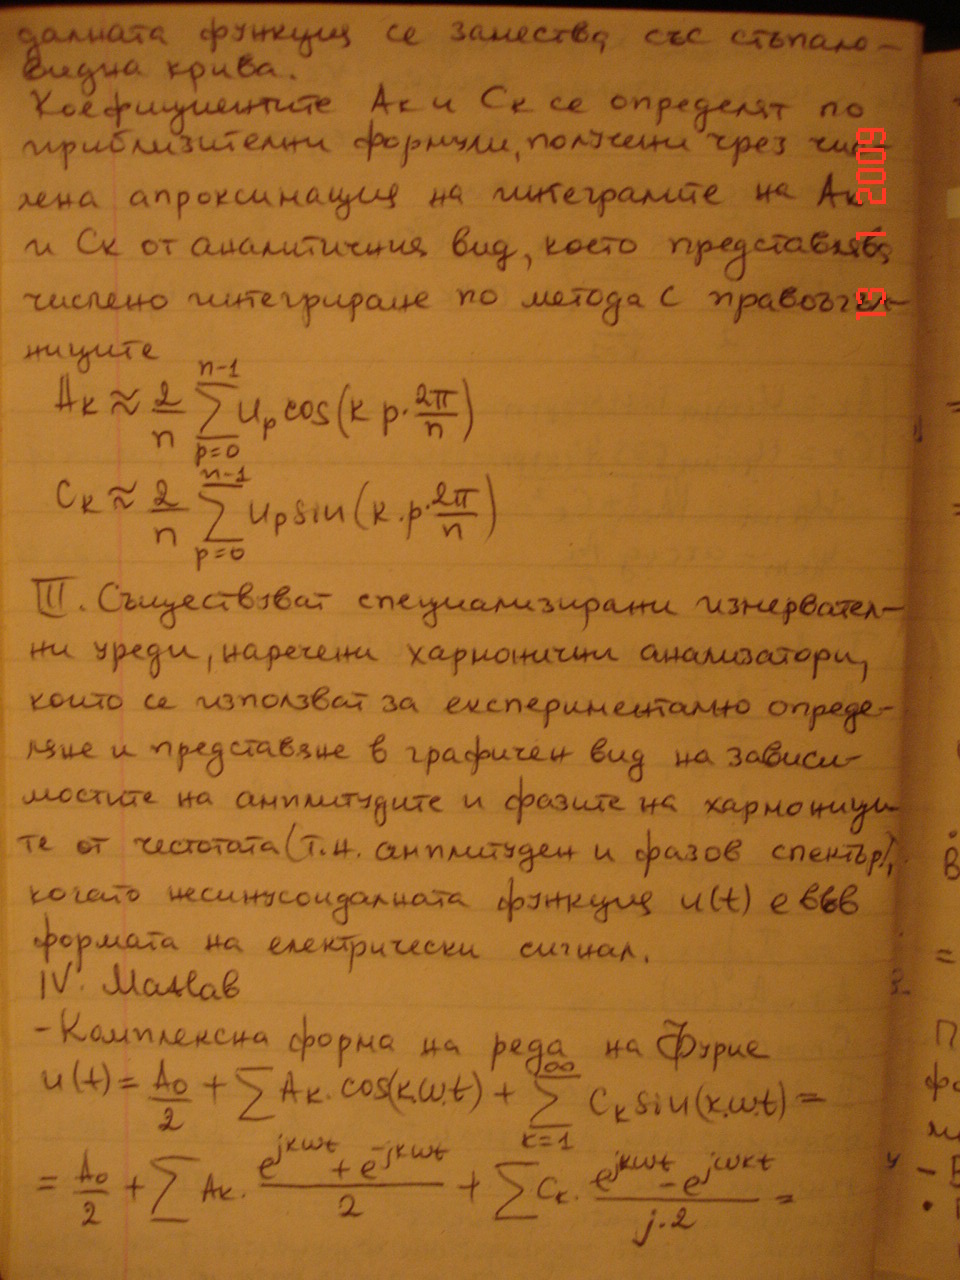 далната функция се замества със стъпало-
видна крива.
Коефициентите Aк и Cк се определят по
приблизителни формули, получени чрез чис-
лена апроксимация на интегралите на Aк
и Cк от аналитичния вид, което представлява
числено интегриране по метода с правоъгъл-
ниците
Aк ≈ 2/n ∑_{p=0}^{n-1} u_p cos(к p · 2π/n)
Cк ≈ 2/n ∑_{p=0}^{n-1} u_p sin(к.p · 2π/n)
III. Съществуват специализирани измервател-
ни уреди, наречени хармонични анализатори,
които се използват за експериментално опреде-
ляне и представяне в графичен вид на зависи-
мостите на амплитудите и фазите на хармоници-
те от честотата (т.н. амплитуден и фазов спектър),
когато несинусоидалната функция u(t) е във
формата на електрически сигнал.
IV. Matlab
- Комплексна форма на реда на Фурие
u(t) = A₀/2 + ∑ Aк. cos(к.ω.t) + ∑_{к=1}^{∞} Cк sin(к.ω.t) =
= A₀/2 + ∑ Aк. (e^{jкωt} + e^{-jкωt})/2 + ∑ Cк. (e^{jкωt} - e^{jωкt})/(j.2) =
13 1 2009